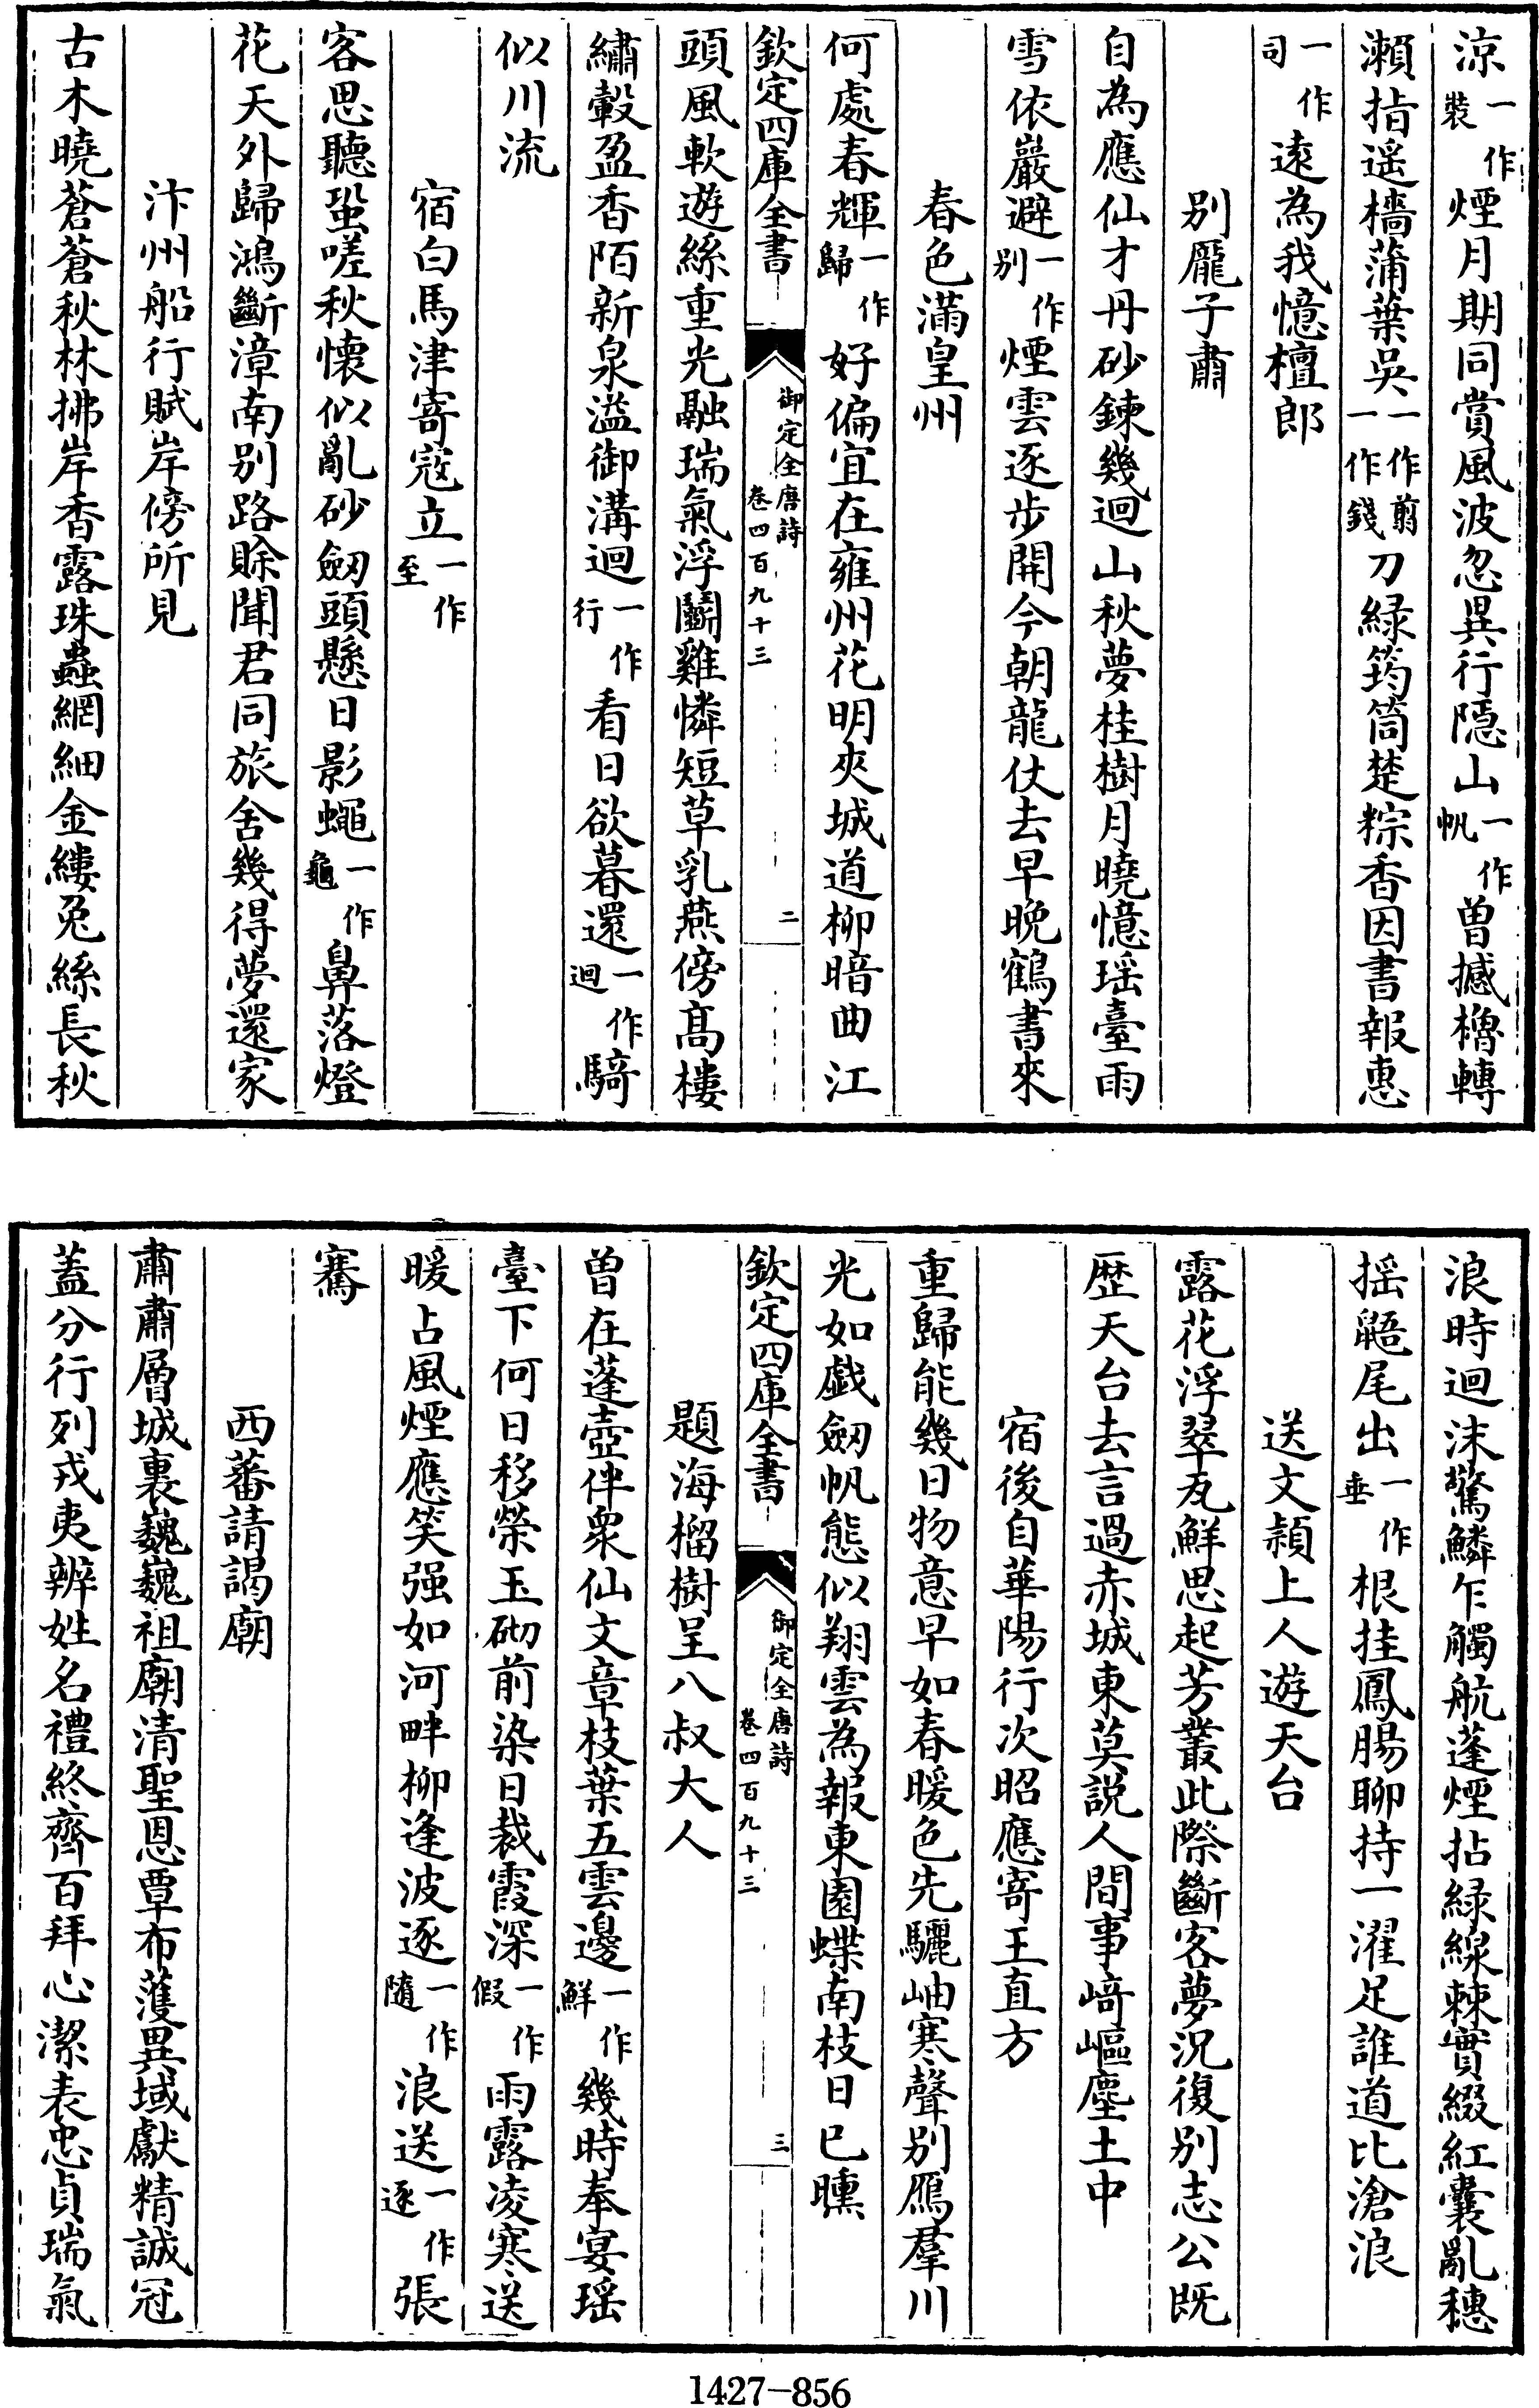 涼一作裝煙月期同賞風波忽異行隱山一作帆曽撼櫓轉
瀨指遥檣蒲葉吳一作剪一作錢刀緑筠筒楚粽香因書報惠
逺為我憶檀郎一作司
别龎子肅
自為應仙才丹砂鍊幾迴山秋夢桂樹月曉憶瑶臺雨
雪依巖避一作别煙雲逐步開今朝龍仗去早晩鶴書來
春色滿皇州
何處春輝一作歸好偏宜在雍州花明夾城道柳暗曲江
欽定四庫全書 御定全唐詩 卷四百九十三 二
頭風軟遊絲重光融瑞氣浮鬭雞憐短草乳燕傍髙樓
繡轂盈香陌新泉溢御溝迴一作行看日欲暮還一作迴騎
似川流
宿白馬津寄寇立一作至
客思聽蛩嗟秋懷似亂砂劒頭懸日影蠅一作龜鼻落燈
花天外歸鴻斷漳南别路賒聞君同旅舍幾得夢還家
汴州船行賦岸傍所見
古木曉蒼蒼秋林拂岸香露珠蟲網細金縷兎絲長秋
浪時迴沫驚鱗乍觸航蓬煙拈緑線棘實綴紅囊亂穗
揺鼯尾出一作垂根挂鳳腸聊持一濯足誰道比滄浪
送文穎上人遊天台
露花浮翠瓦鮮思起芳叢此際斷客夢況復别志公既
歴天台去言過赤城東莫説人間事﨑嶇塵土中
宿後自華陽行次昭應寄王直方
重歸能幾日物意早如春暖色先驪岫寒聲别鴈羣川
光如戯劒帆態似翔雲為報東園蝶南枝日已曛
欽定四庫全書 御定全唐詩 卷四百九十三 三
題海榴樹呈八叔大人
曽在蓬壺伴衆仙文章枝葉五雲邊一作鮮幾時奉宴瑶
臺下何日移榮玉砌前染日裁霞深一作假雨露凌寒送
暖占風煙應笑强如河畔柳逢波逐一作隨浪送一作逐張
騫
西蕃請謁廟
肅肅層城裏巍巍祖廟清聖恩覃布濩異域獻精誠冠
蓋分行列戎夷辨姓名禮終齊百拜心潔表忠貞瑞氣
1427-856